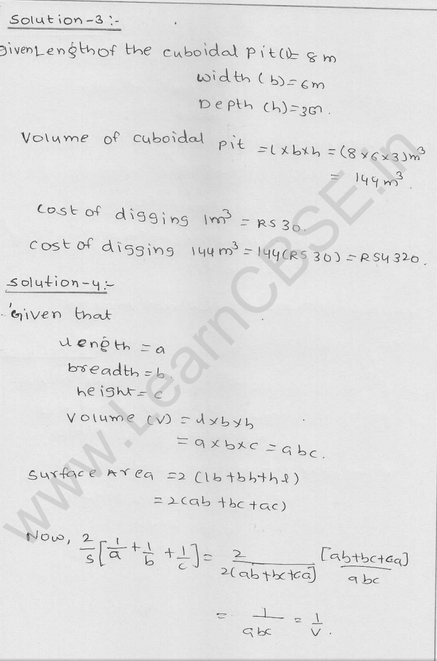 Solution-3:-
GivenLength of the cuboidal pit(l)= 8 m
width (b)=6m
Depth (h)=3m.
Volume of cuboidal pit =l×b×h =(8×6×3)m³
= 144m³.
Cost of digging 1m³ = RS 30.
Cost of digging 144m³ = 144(RS 30) = RS4320.
Solution-4:-
Given that
Length = a
breadth = b
height = c
Volume (V) = l×b×h
= a×b×c = abc.
Surface Area = 2 (lb+bh+hl)
= 2(ab +bc +ac)
Now, 2/s [1/a + 1/b + 1/c] = 2/2(ab+bc+ca) [ab+bc+ca]/abc
= 1/abc = 1/V.
www.LearnCBSE.in